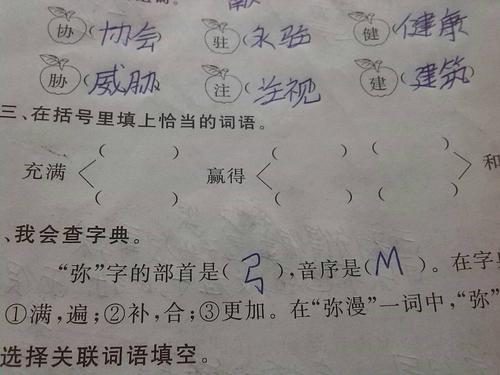 协(协会) 驻(永驻) 健(健康)
胁(威胁) 注(注视) 建(建筑)
三、在括号里填上恰当的词语。
充满 ( ) ( ) 赢得 ( ) ( ) ( ) ( ) 和
、我会查字典。
“弥”字的部首是(弓),音序是(M)。在字
①满,遍;②补,合;③更加。在“弥漫”一词中,“弥”
选择关联词语填空。